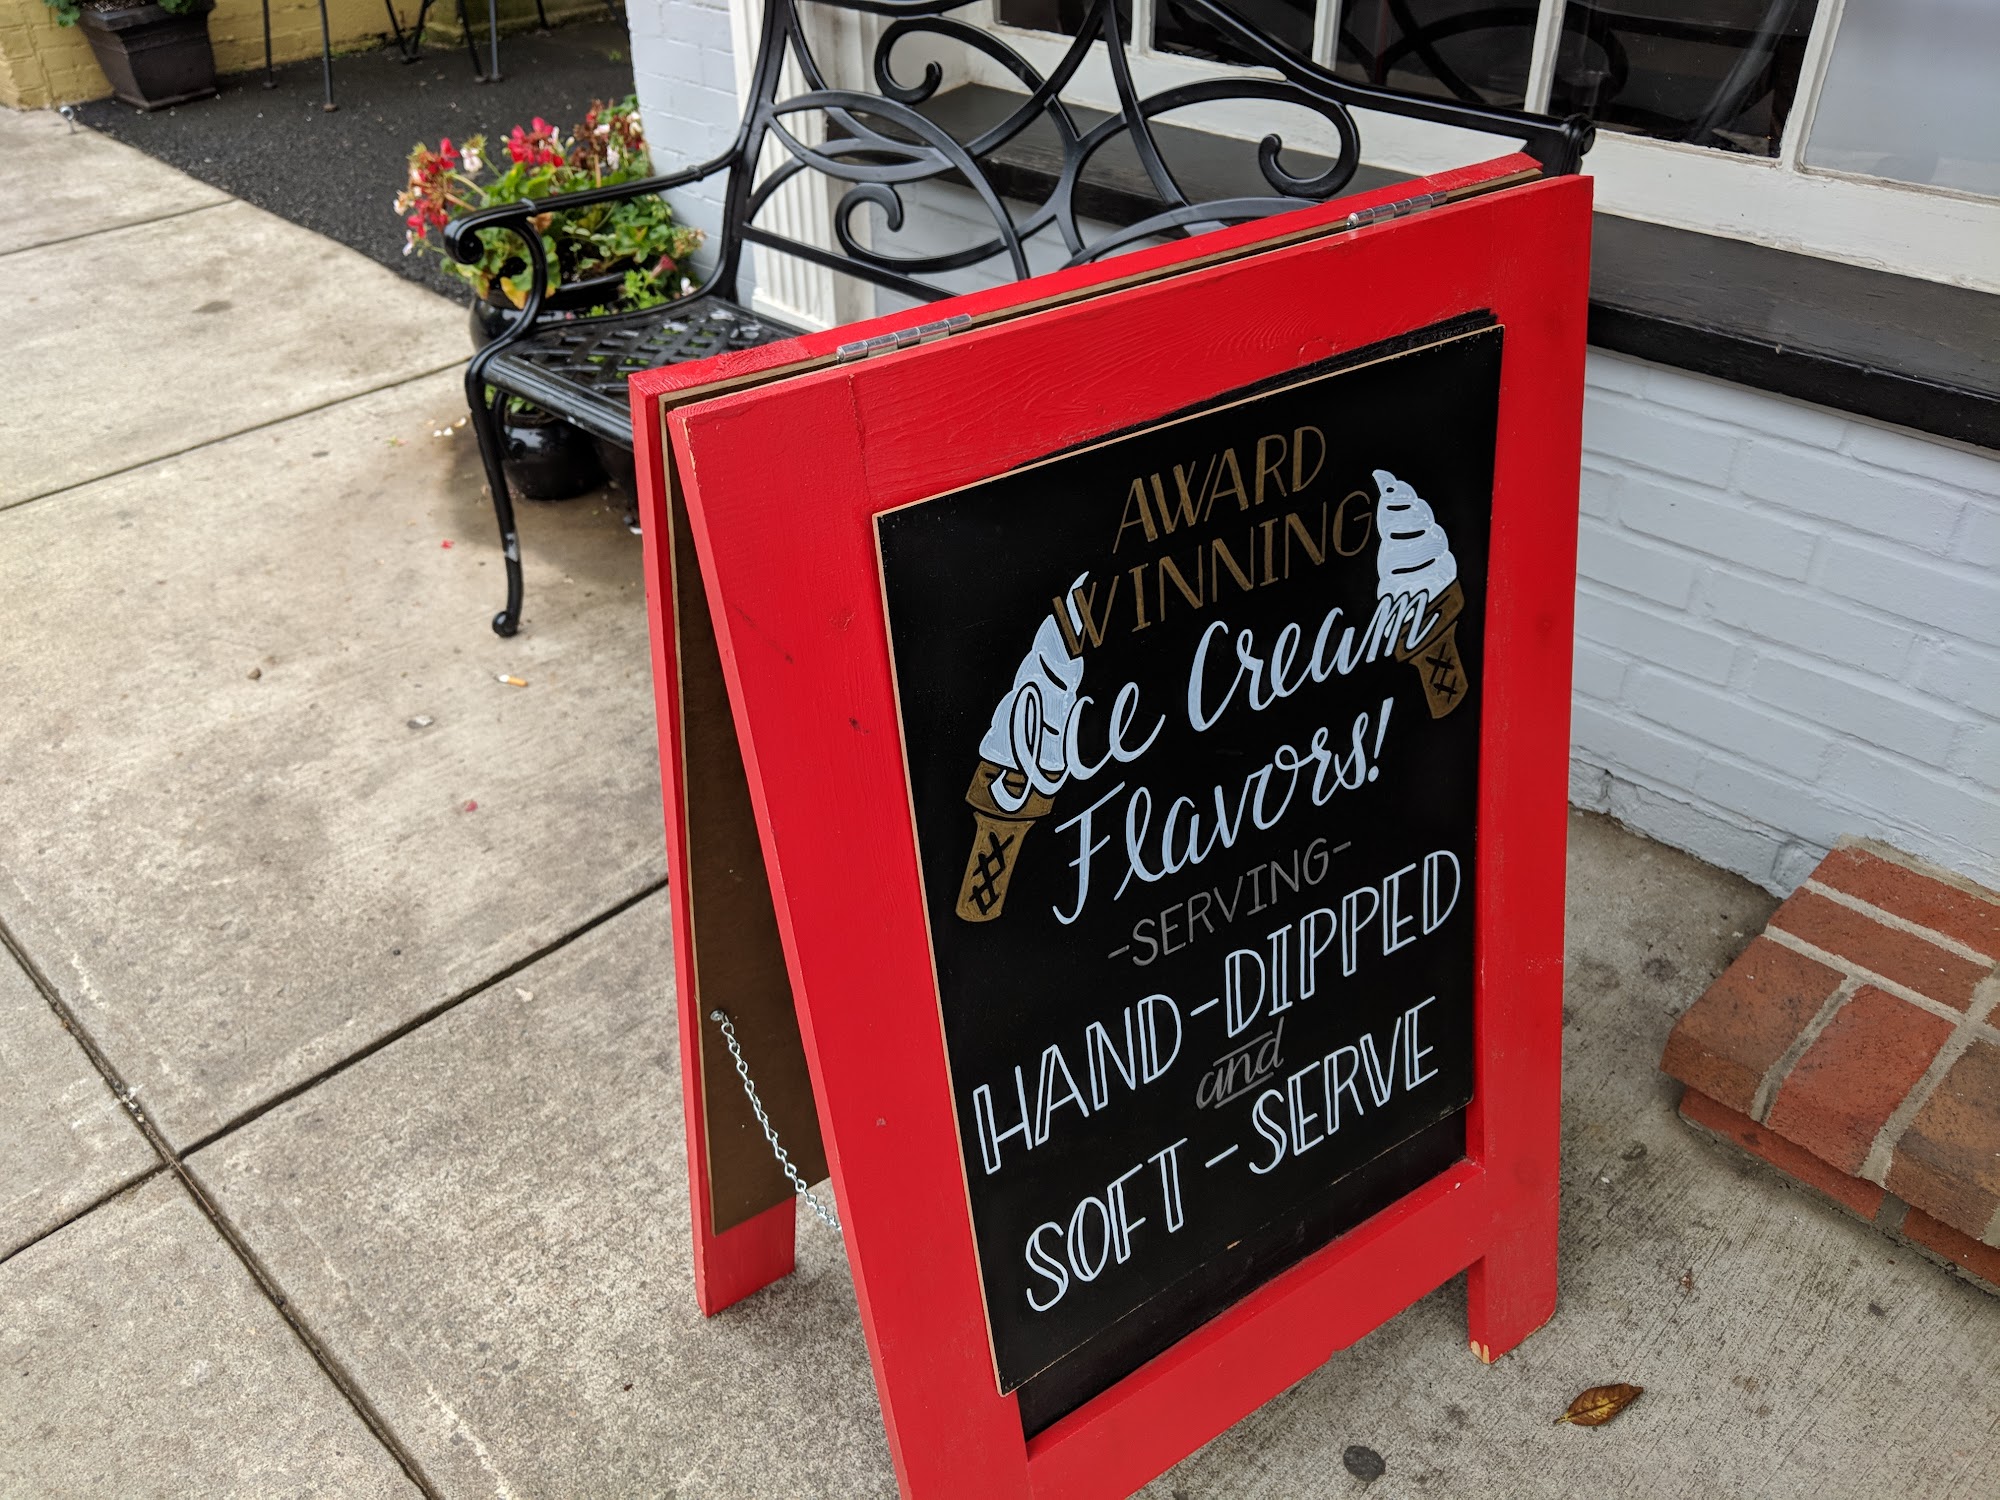 AWARD
WINNING
Ice Cream
Flavors!
-SERVING-
HAND-DIPPED
and
SOFT-SERVE